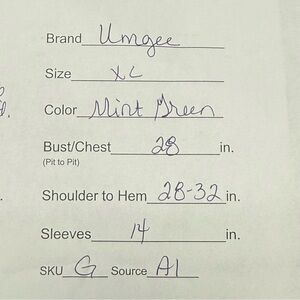 Brand Umgee
Size XL
d. Color Mint Green
Bust/Chest 28 in.
(Pit to Pit)
Shoulder to Hem 28-32 in.
Sleeves 14 in.
SKU G Source A1